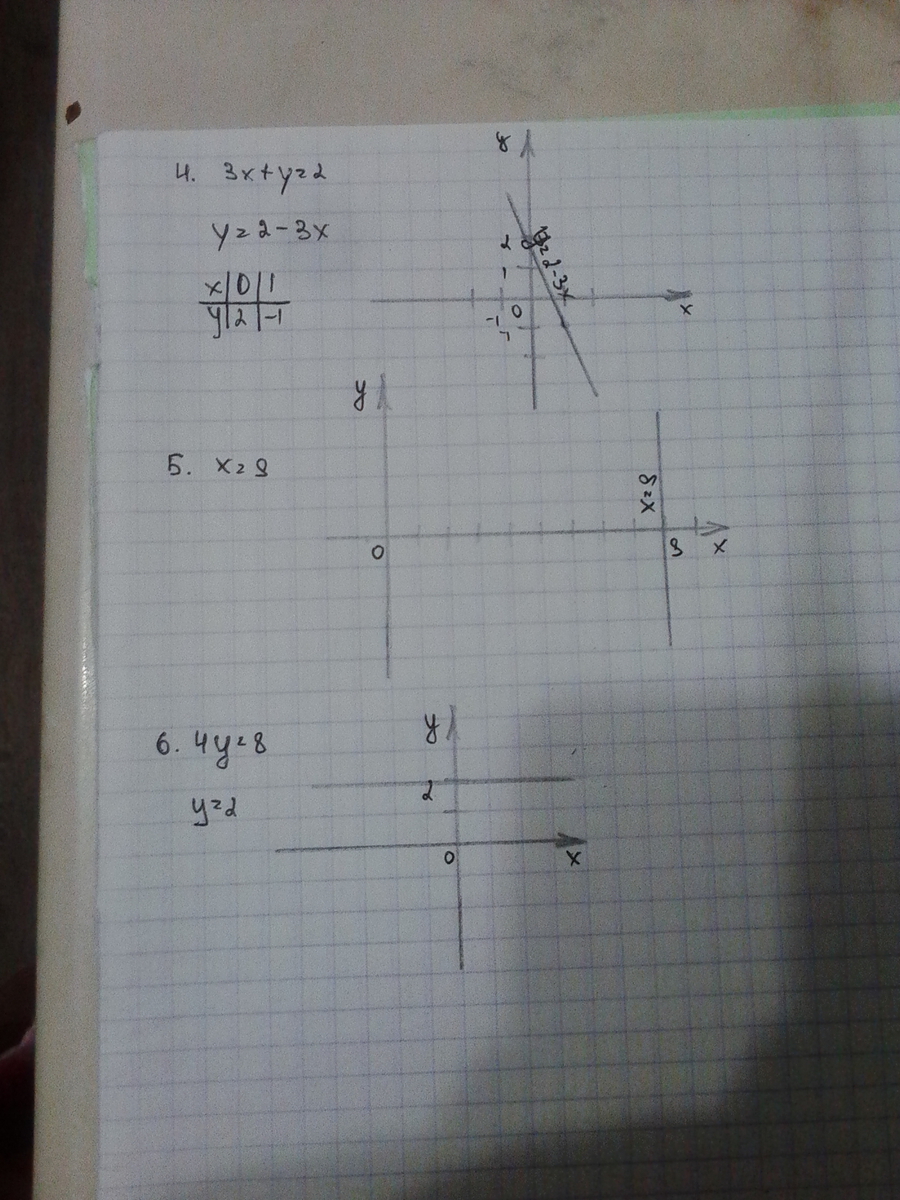 4. 3x+y=2
y=2-3x
x|0|1
y|2|-1
y
2
1
0
-1
-1
x
y=2-3x
5. x=9
y
0
x=9
9
x
6. 4y=8
y=2
y
2
0
x